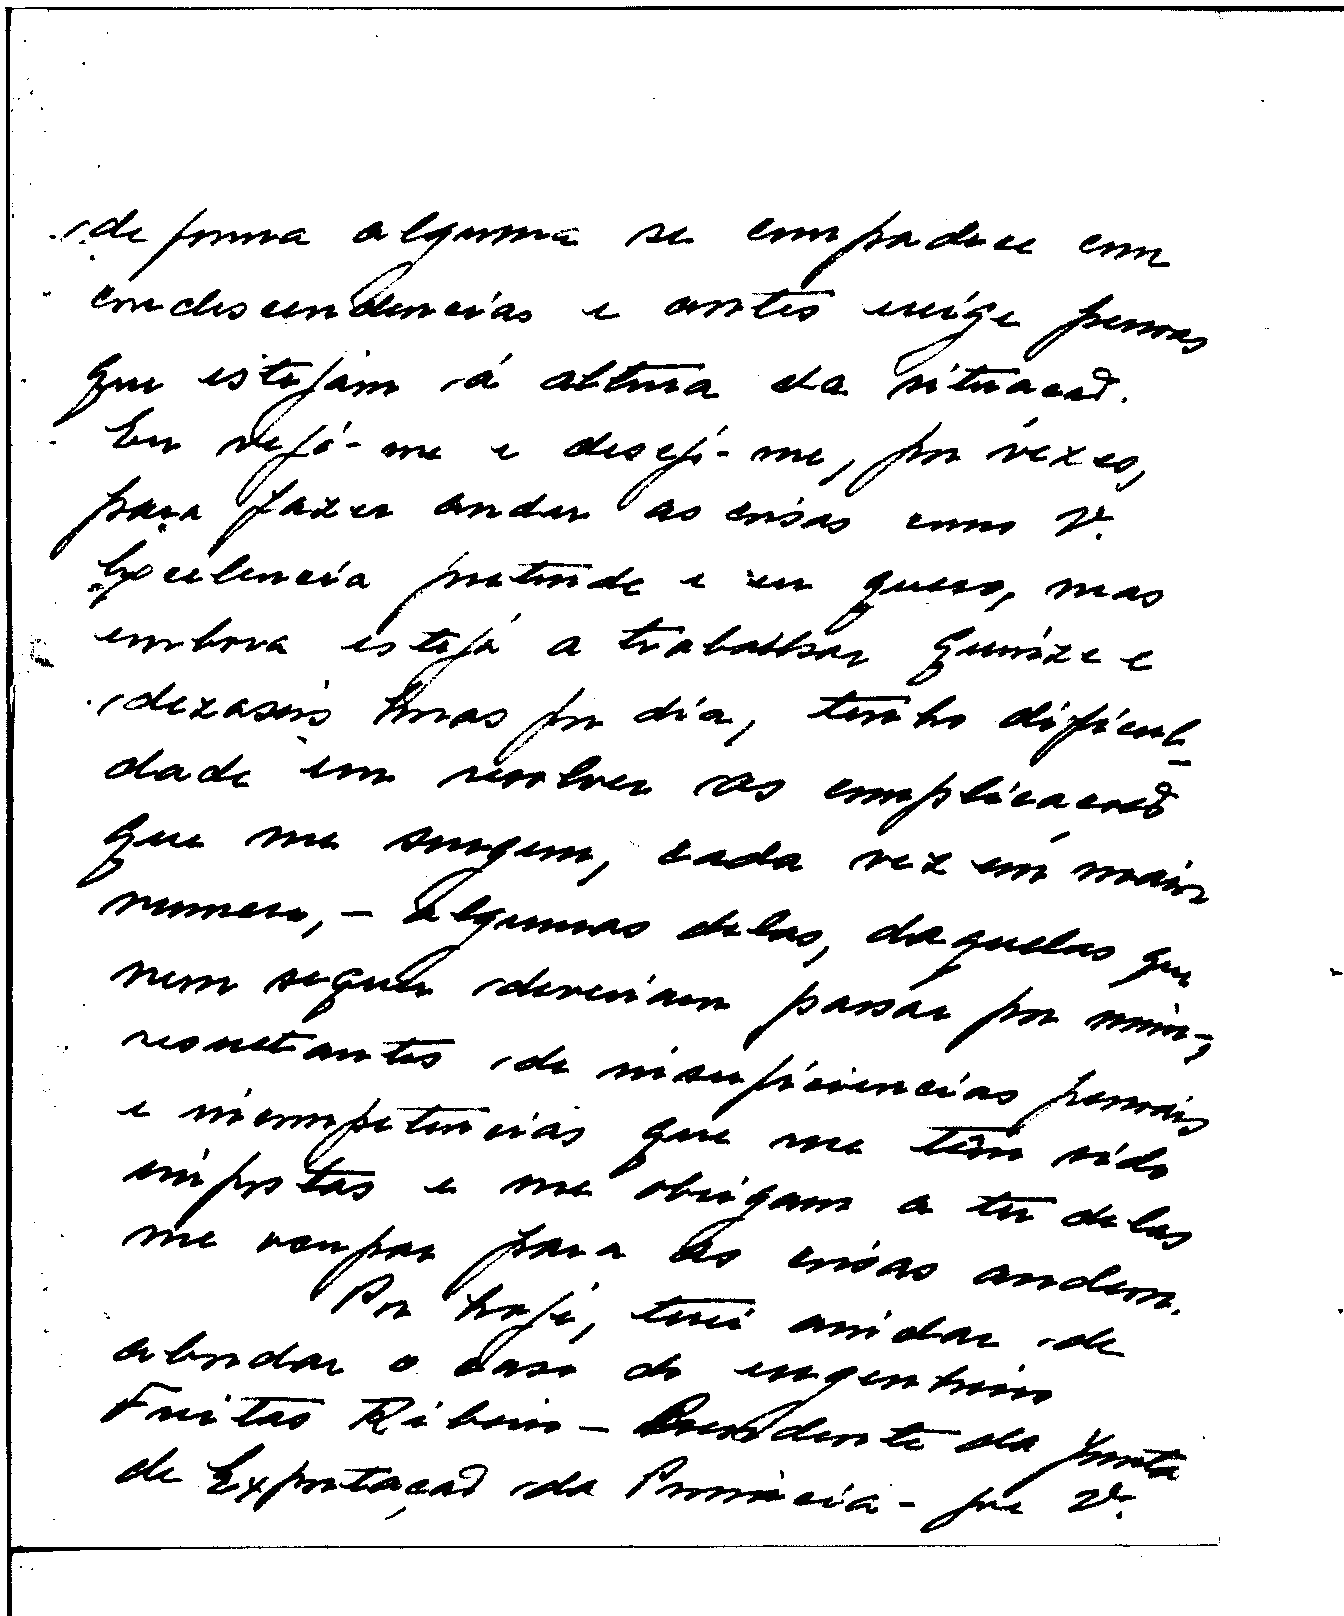 de forma alguma se compadece com
condescendencias e antes exige pessoas
que estejam á altura da situação.
Eu vejo-me e desejo-me, por vezes,
para fazer andar as coisas como V.
Excelencia pretende e eu quero, mas
embora esteja a trabalhar quinze e
dezaseis horas por dia, tenho dificul-
dade em resolver as complicações
que me surgem, cada vez em maior
numero, - algumas delas, daquelas que
nem sequer deveriam passar por mim-,
resultantes de insuficiencias pessoais
e incompetencias que me têm sido
impostas e me obrigam a ter delas
me ocupar para as coisas andem.
Por hoje, terei ainda de
abordar o caso do engenheiro
Freitas Ribeiro - Presidente da Junta
de Exportação da Provincia - que V.